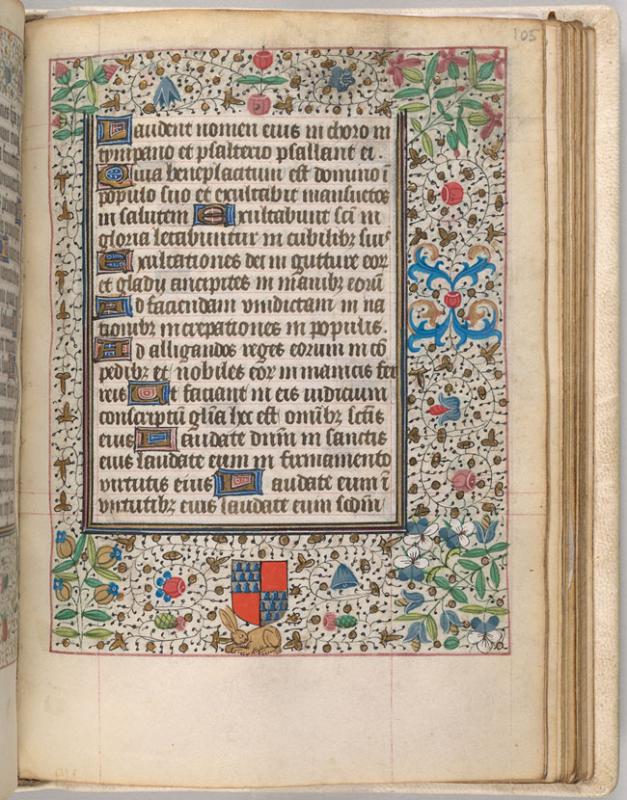 105
Laudent nomen eius in choro in
tympano et psalterio psallant ei.
Quia beneplacitum est domino ī
populo suo et exultabit mansuetos
in salutem Exultabunt scī in
gloria letabuntur in cubilibꝫ suis
Exultationes dei in gutture eor
et gladij ancipites in manibꝫ eorū
Ad faciendam vindictam in na
tionibꝫ increpationes in populis.
Ad alligandos reges eorum in cō
pedibꝫ et nobiles eor in manicis fer
reis Et faciant in eis iudicium
conscriptū glīa hec est omībꝫ scīs
eius Laudate dnm̄ in sanctis
eius laudate eum in firmamento
virtutis eius Laudate eum ī
virtutibꝫ eius laudate eum scdm̄